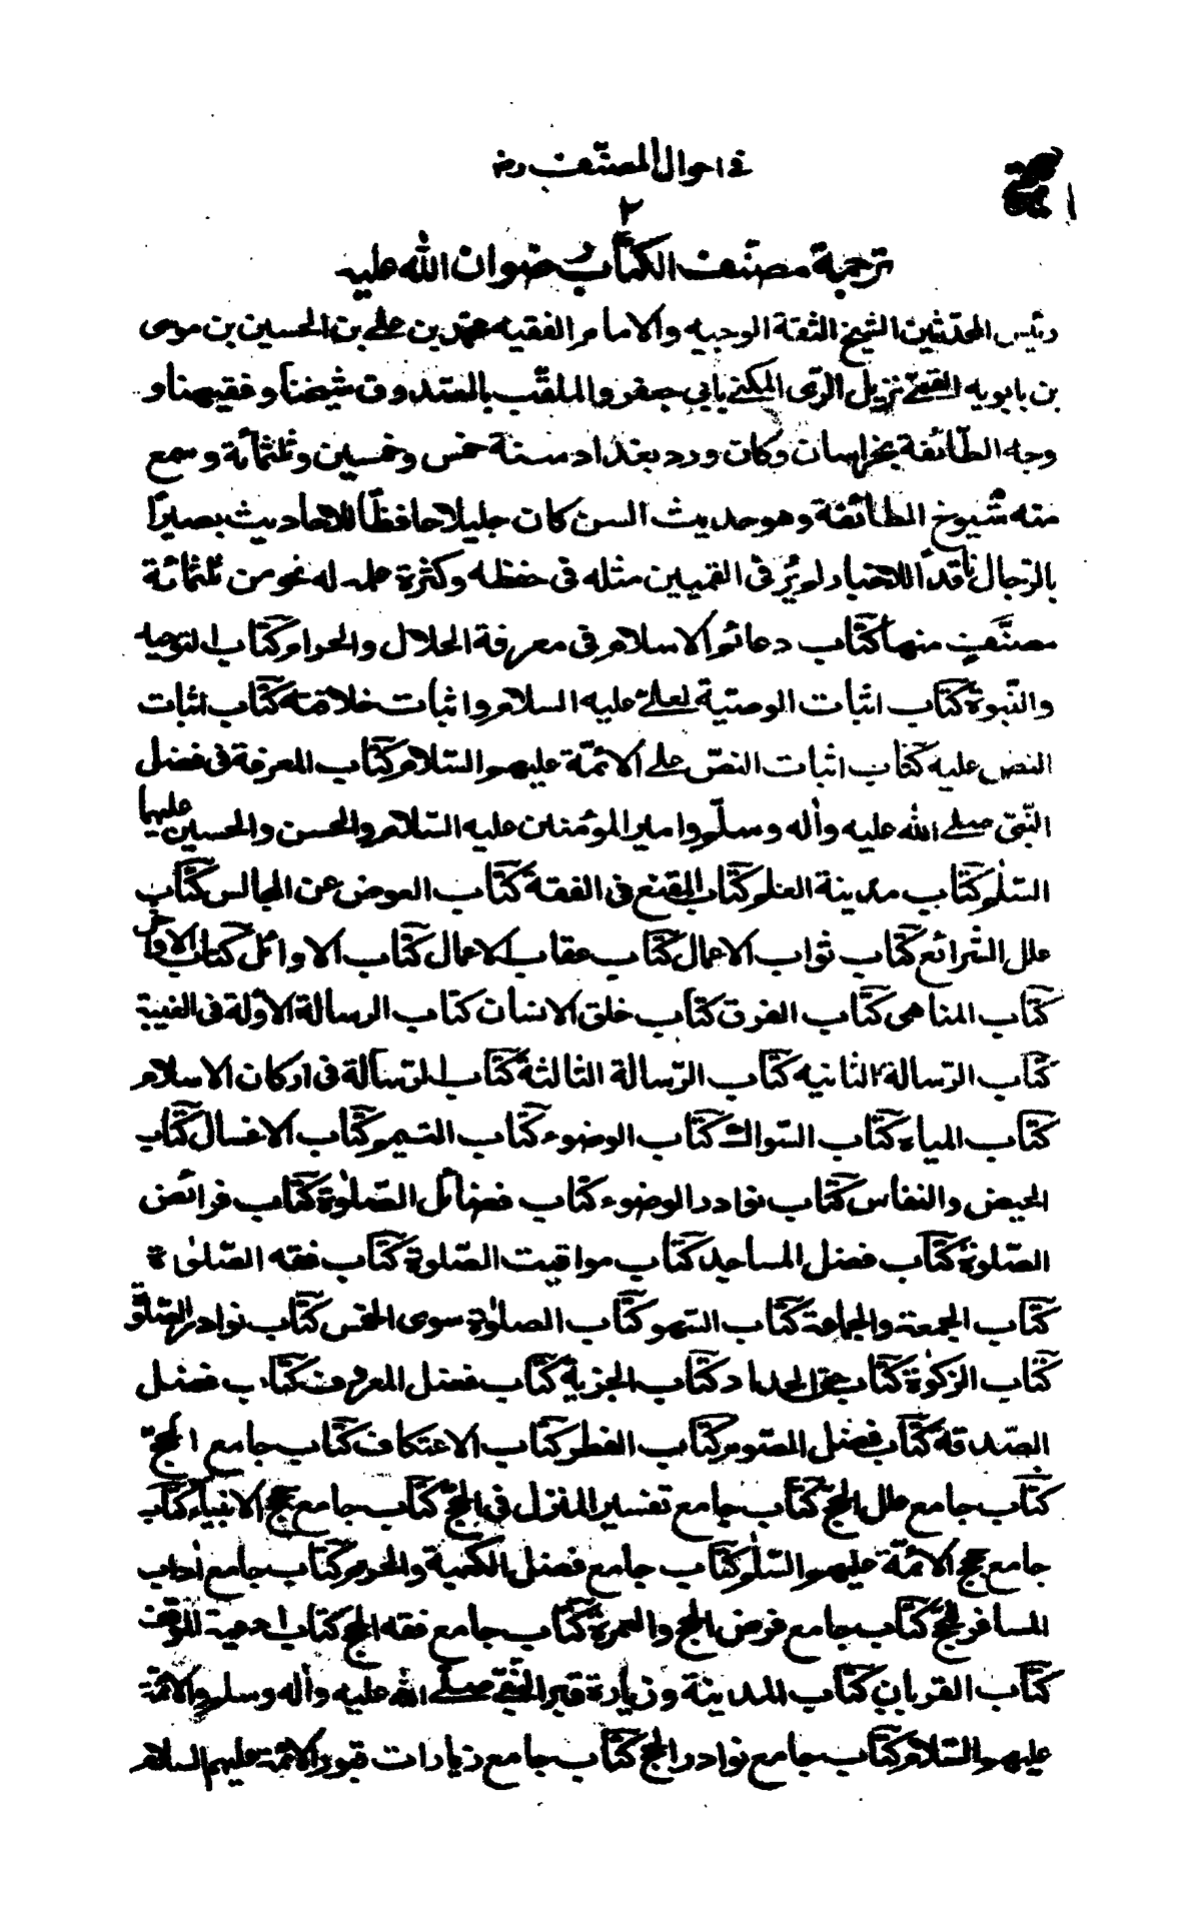 في احوال المصنف رض
٢
ترجمة مصنف الكتاب رضوان الله عليه
رئيس المحدثين الشيخ الثقة الوجيه والامام الفقيه محمد بن علي بن الحسين بن موسى
بن بابويه القمي نزيل الري المكنى بابي جعفر والملقب بالصدوق شيخنا وفقيهنا و
وجه الطائفة بخراسان وكان ورد بغداد سنة خمس وخمسين وثلثمائة وسمع
منه شيوخ الطائفة وهو حديث السن كان جليلا حافظا للاحاديث بصيراً
بالرجال ناقداً للاخبار لم يُرَ في القميين مثله في حفظه وكثرة علمه له نحو من ثلثمائة
مصنَّفٍ منها كتاب دعائم الاسلام في معرفة الحلال والحرام كتاب التوحيد
والنّبوة كتاب اثبات الوصيّة لعلي عليه السلام واثبات خلافته كتاب اثبات
النص عليه كتاب اثبات النصّ على الائمّة عليهم السّلام كتاب المعرفة في فضل
النّبيّ صلى الله عليه وآله وسلّم وامير المؤمنين عليه السّلام والحسن والحسين عليهما
السّلم كتاب مدينة العلم كتاب المقنع في الفقه كتاب العوض عن المجالس كتاب
علل الشرائع كتاب ثواب الاعمال كتاب عقاب الاعمال كتاب الاوائل كتاب الاواخر
كتاب المناهي كتاب الفرق كتاب خلق الانسان كتاب الرسالة الاوّلة في الغيبة
كتاب الرّسالة الثانيه كتاب الرّسالة الثالثة كتاب الرّسالة في اركان الاسلام
كتاب المياه كتاب السّواك كتاب الوضوء كتاب التيمم كتاب الاغسال كتاب
الحيض والنفاس كتاب نوادر الوضوء كتاب فضائل الصّلوة كتاب فرائض
الصّلوة كتاب فضل المساجد كتاب مواقيت الصّلوة كتاب فقه الصّلوٰة
كتاب الجمعة والجماعة كتاب السّهو كتاب الصلوٰة سوى الخمس كتاب نوادر الصّلوة
كتاب الزكوٰة كتاب حق الجداد كتاب الجزية كتاب فضل المعروف كتاب فضل
الصّدقة كتاب فضل الصّوم كتاب الفطر كتاب الاعتكاف كتاب جامع الحجّ
كتاب جامع علل الحجّ كتاب جامع تفسير المنزل في الحجّ كتاب جامع حجج الانبياء كتاب
جامع حجج الائمّة عليهم السّلم كتاب جامع فضل الكعبة والحرم كتاب جامع آداب
المسافر للحجّ كتاب جامع فرض الحج والعمرة كتاب جامع فقه الحج كتاب ادعية الموقف
كتاب القربان كتاب المدينة وزيارة قبر النّبي صلّى الله عليه وآله وسلم والائمّة
عليهم السّلام كتاب جامع نوادر الحج كتاب جامع زيارات قبور الائمة عليهم السلام